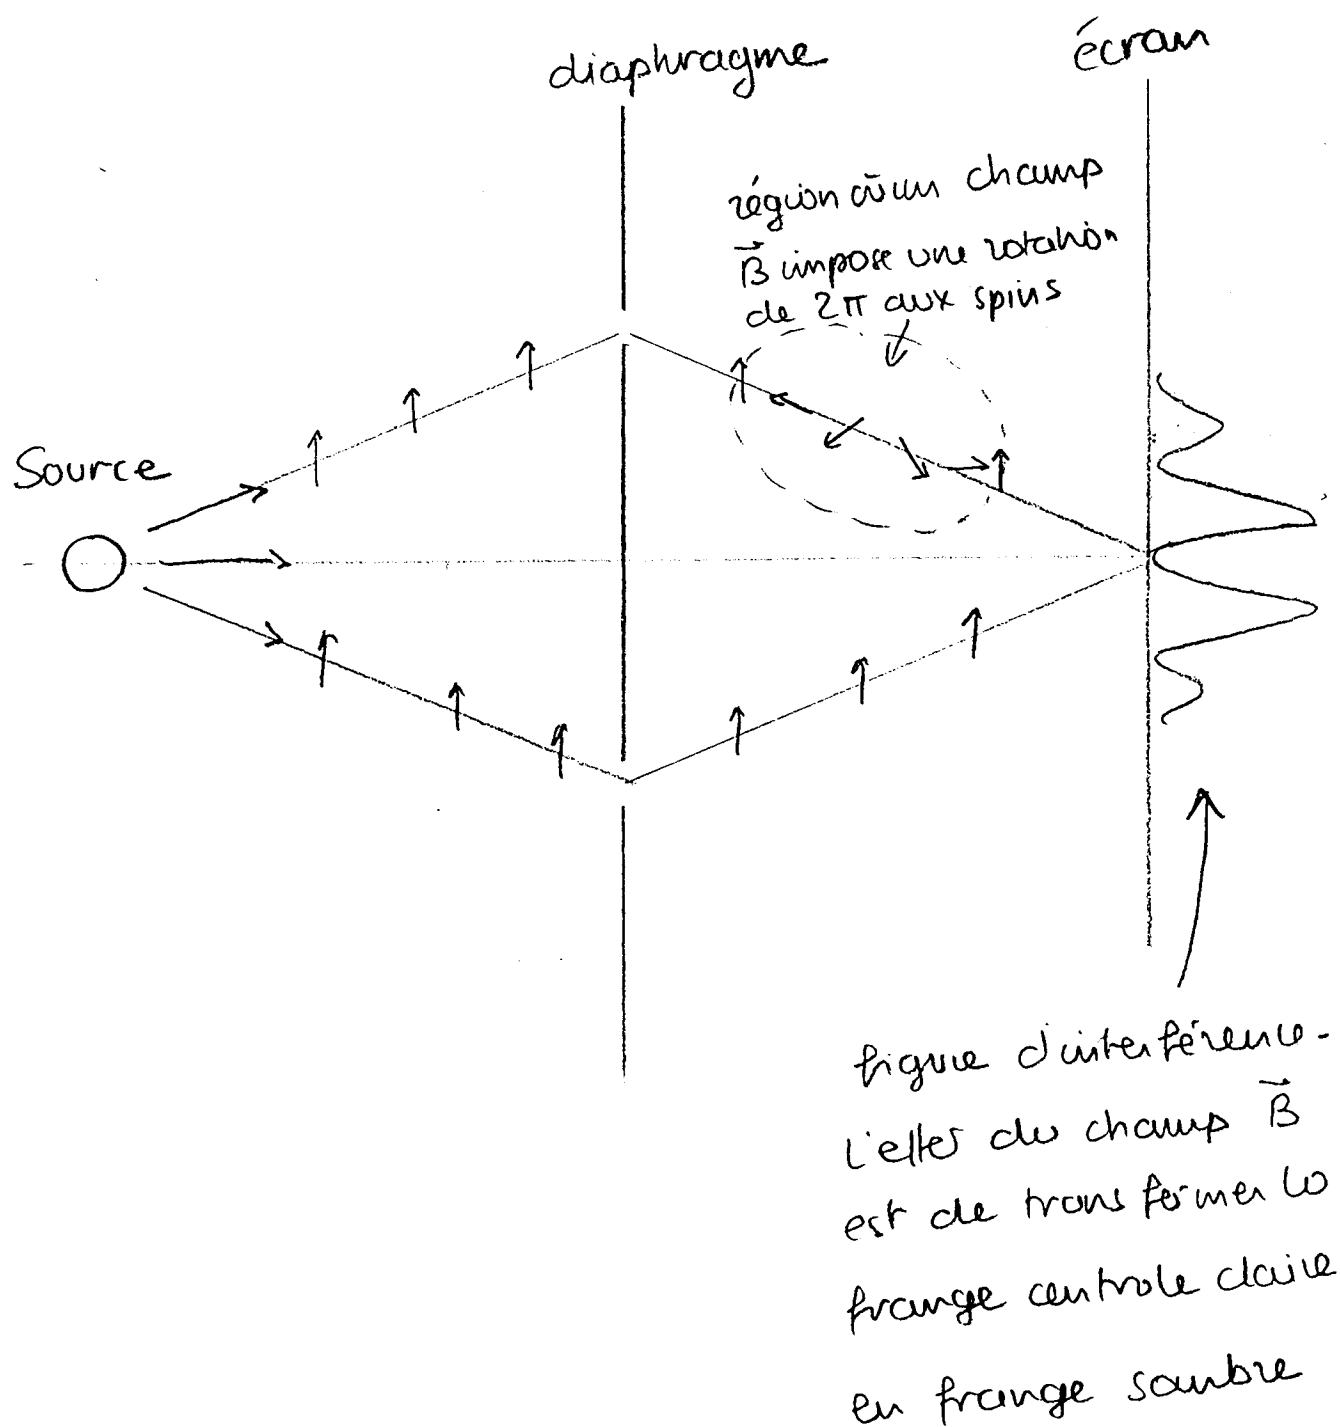 diaphragme
écran
région où un champ
B⃗ impose une rotation
de 2π aux spins
Source
figure d'interférence.
L'effet du champ B⃗
est de transformer la
frange centrale claire
en frange sombre